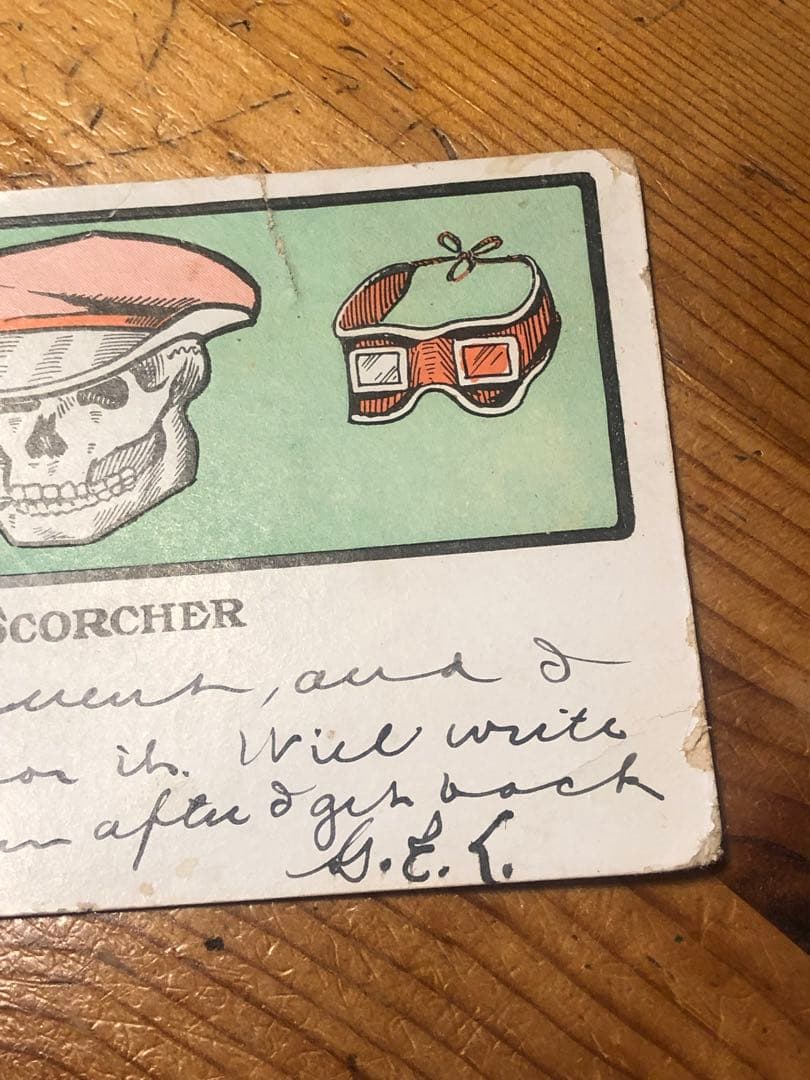 SCORCHER
, and I
it. Will write
after I get back
G.E.L.